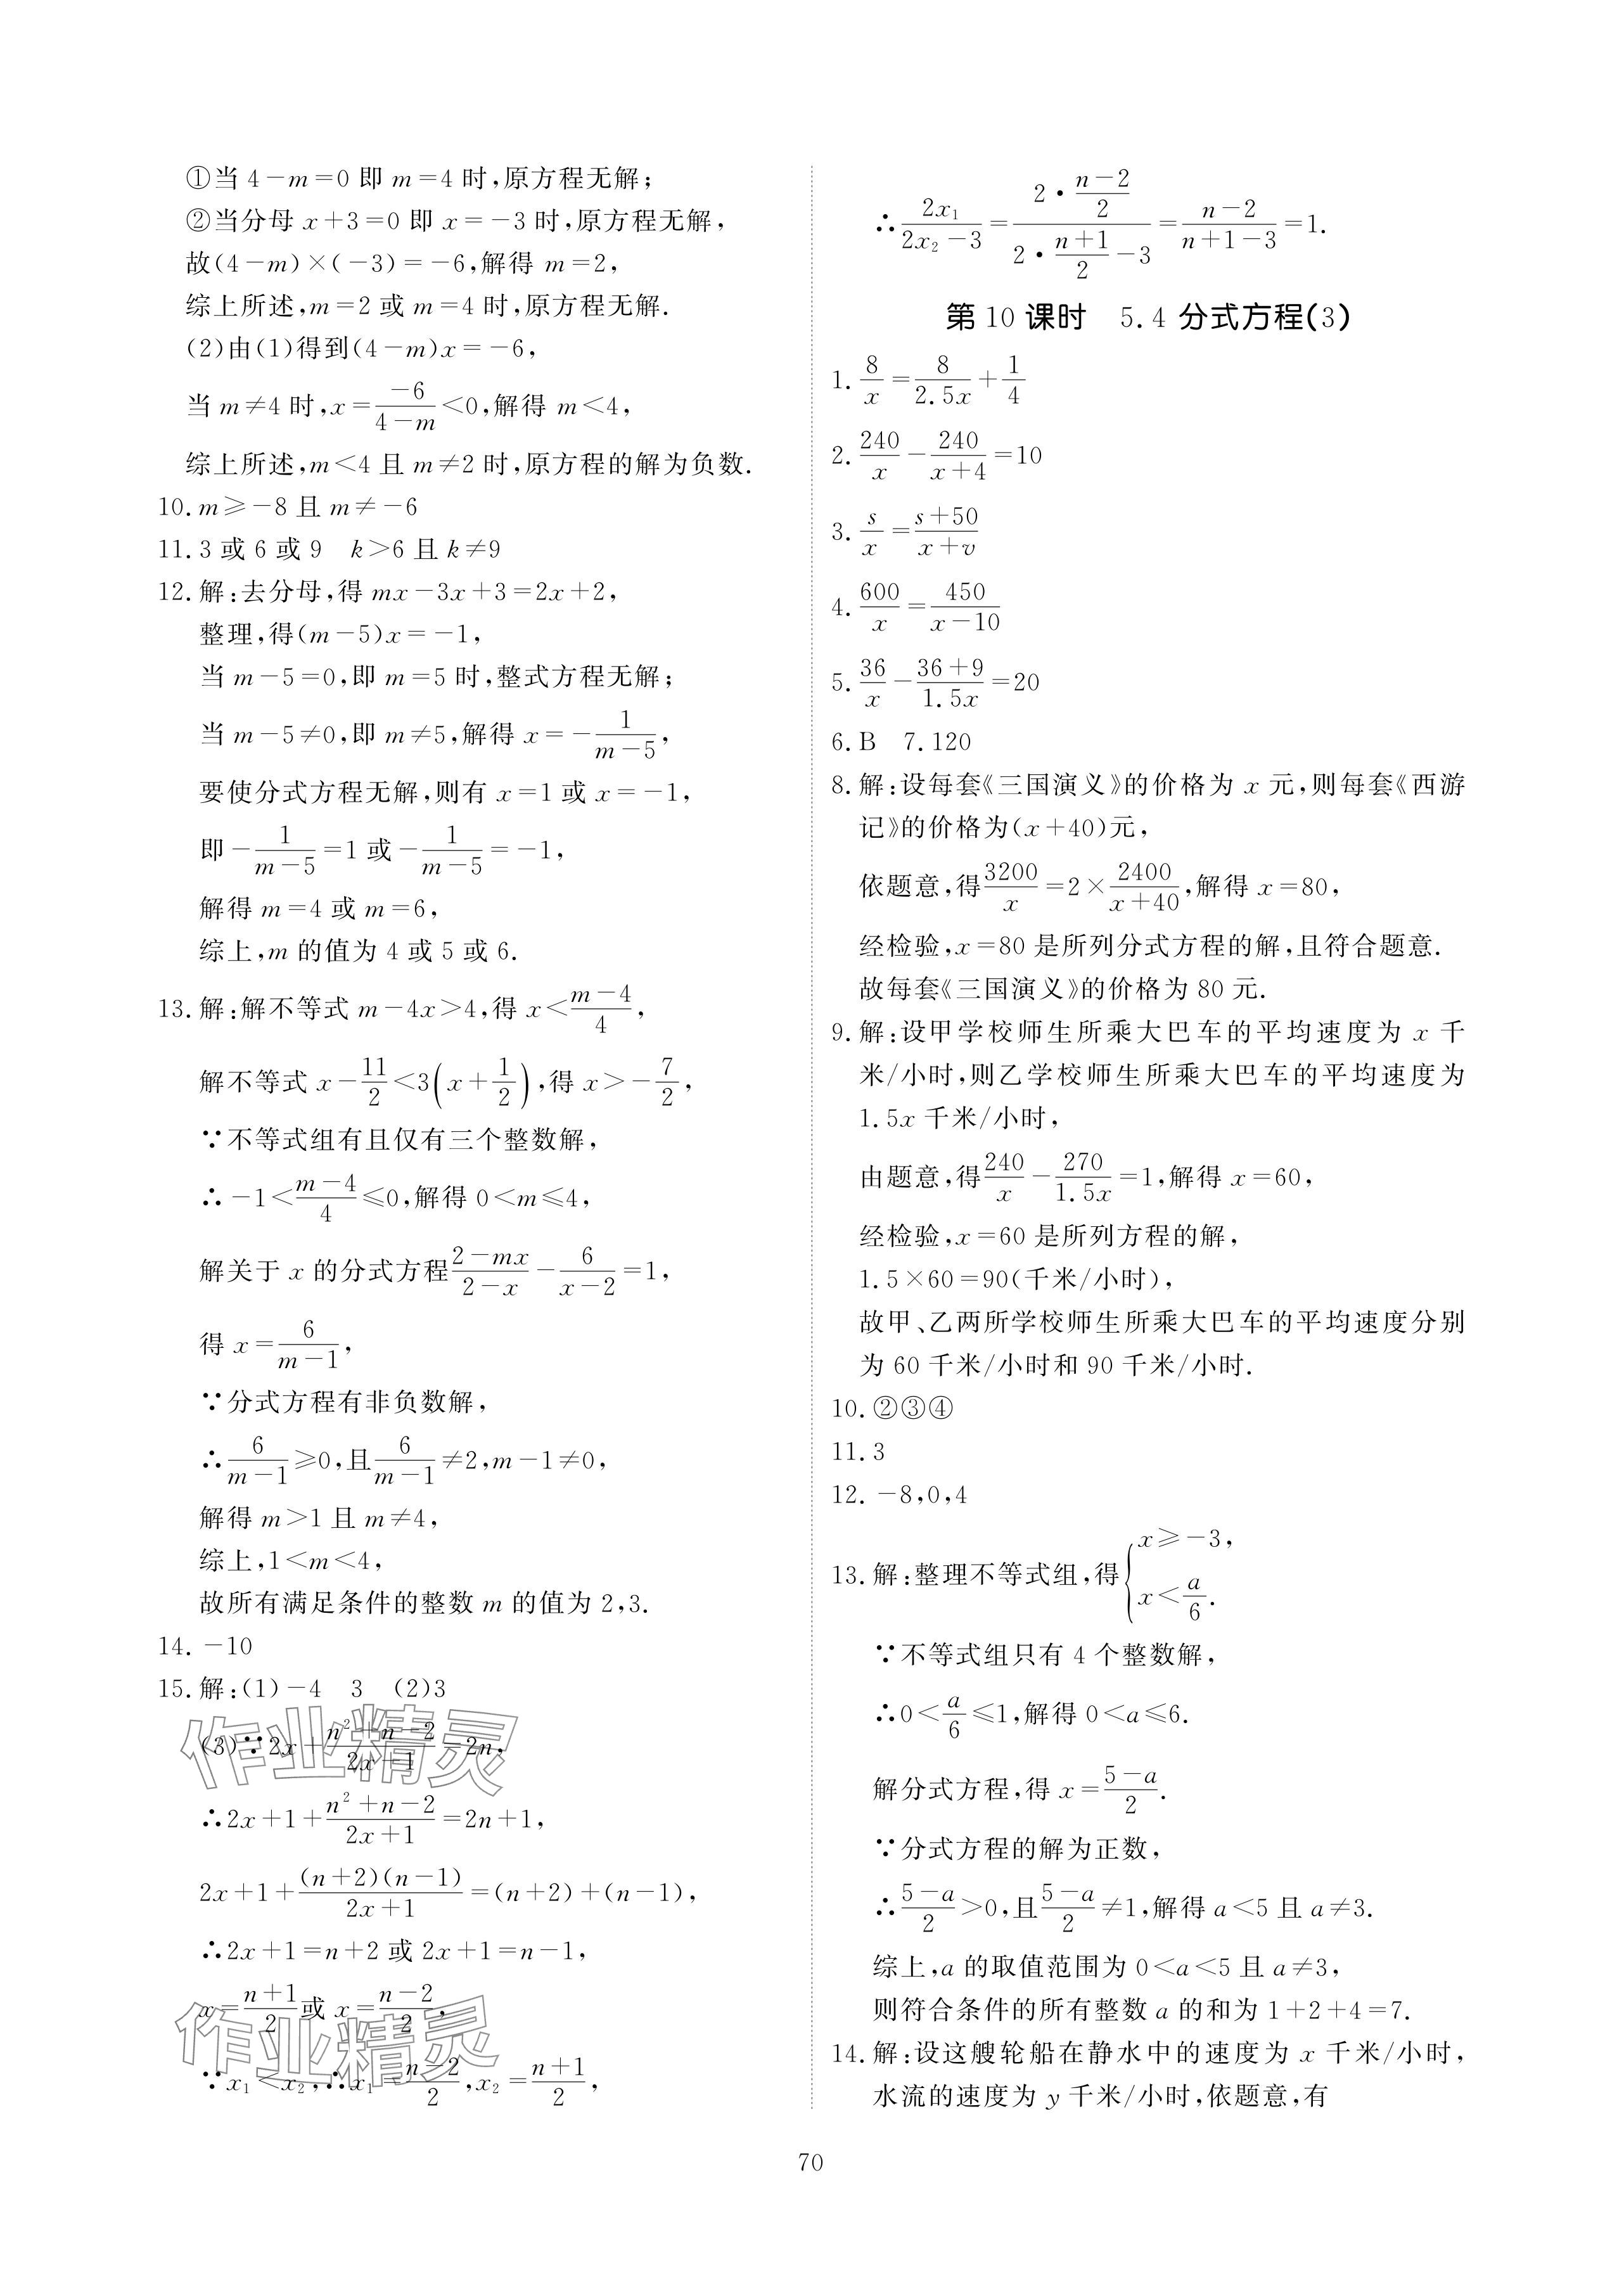 ①当 4－m＝0 即 m＝4 时,原方程无解;
②当分母 x＋3＝0 即 x＝－3 时,原方程无解,
故(4－m)×(－3)＝－6,解得 m＝2,
综上所述,m＝2 或 m＝4 时,原方程无解.
(2)由(1)得到(4－m)x＝－6,
当 m≠4 时,x＝\frac{-6}{4-m}＜0,解得 m＜4,
综上所述,m＜4 且 m≠2 时,原方程的解为负数.
10. m≥－8 且 m≠－6
11. 3 或 6 或 9　k＞6 且 k≠9
12. 解:去分母,得 mx－3x＋3＝2x＋2,
整理,得(m－5)x＝－1,
当 m－5＝0,即 m＝5 时,整式方程无解;
当 m－5≠0,即 m≠5,解得 x＝－\frac{1}{m-5},
要使分式方程无解,则有 x＝1 或 x＝－1,
即－\frac{1}{m-5}＝1 或－\frac{1}{m-5}＝－1,
解得 m＝4 或 m＝6,
综上,m 的值为 4 或 5 或 6.
13. 解:解不等式 m－4x＞4,得 x＜\frac{m-4}{4},
解不等式 x－\frac{11}{2}＜3(x＋\frac{1}{2}),得 x＞－\frac{7}{2},
∵不等式组有且仅有三个整数解,
∴－1＜\frac{m-4}{4}≤0,解得 0＜m≤4,
解关于 x 的分式方程\frac{2-mx}{2-x}－\frac{6}{x-2}＝1,
得 x＝\frac{6}{m-1},
∵分式方程有非负数解,
∴\frac{6}{m-1}≥0,且\frac{6}{m-1}≠2,m－1≠0,
解得 m＞1 且 m≠4,
综上,1＜m＜4,
故所有满足条件的整数 m 的值为 2,3.
14. －10
15. 解:(1)－4　3　(2)3
(3)∵2x＋\frac{n^2+n-2}{2x+1}＝2n,
∴2x＋1＋\frac{n^2+n-2}{2x+1}＝2n＋1,
2x＋1＋\frac{(n+2)(n-1)}{2x+1}＝(n＋2)＋(n－1),
∴2x＋1＝n＋2 或 2x＋1＝n－1,
x＝\frac{n+1}{2}或 x＝\frac{n-2}{2},
∵x₁＜x₂,∴x₁＝\frac{n-2}{2},x₂＝\frac{n+1}{2},
作业精灵
作业精灵
∴\frac{2x₁}{2x₂-3}＝\frac{2·\frac{n-2}{2}}{2·\frac{n+1}{2}-3}＝\frac{n-2}{n+1-3}＝1.
第 10 课时　5.4 分式方程(3)
1. \frac{8}{x}＝\frac{8}{2.5x}＋\frac{1}{4}
2. \frac{240}{x}－\frac{240}{x+4}＝10
3. \frac{s}{x}＝\frac{s+50}{x+v}
4. \frac{600}{x}＝\frac{450}{x-10}
5. \frac{36}{x}－\frac{36+9}{1.5x}＝20
6. B　7. 120
8. 解:设每套《三国演义》的价格为 x 元,则每套《西游
记》的价格为(x＋40)元,
依题意,得\frac{3200}{x}＝2×\frac{2400}{x+40},解得 x＝80,
经检验,x＝80 是所列分式方程的解,且符合题意.
故每套《三国演义》的价格为 80 元.
9. 解:设甲学校师生所乘大巴车的平均速度为 x 千
米/小时,则乙学校师生所乘大巴车的平均速度为
1.5x 千米/小时,
由题意,得\frac{240}{x}－\frac{270}{1.5x}＝1,解得 x＝60,
经检验,x＝60 是所列方程的解,
1.5×60＝90(千米/小时),
故甲、乙两所学校师生所乘大巴车的平均速度分别
为 60 千米/小时和 90 千米/小时.
10. ②③④
11. 3
12. －8,0,4
13. 解:整理不等式组,得{x≥－3, x＜\frac{a}{6}.
∵不等式组只有 4 个整数解,
∴0＜\frac{a}{6}≤1,解得 0＜a≤6.
解分式方程,得 x＝\frac{5-a}{2}.
∵分式方程的解为正数,
∴\frac{5-a}{2}＞0,且\frac{5-a}{2}≠1,解得 a＜5 且 a≠3.
综上,a 的取值范围为 0＜a＜5 且 a≠3,
则符合条件的所有整数 a 的和为 1＋2＋4＝7.
14. 解:设这艘轮船在静水中的速度为 x 千米/小时,
水流的速度为 y 千米/小时,依题意,有
70